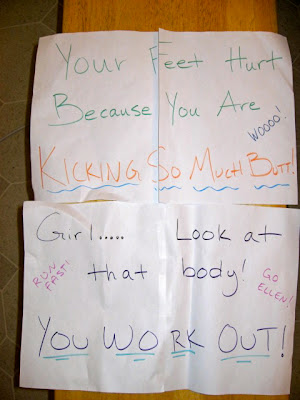 Your Feet Hurt
Because You Are
WOOOO!
KICKING SO MUCH BUTT!
Girl..... Look at
that body!
RUN FAST!
GO ELLEN!
YOU WORK OUT!